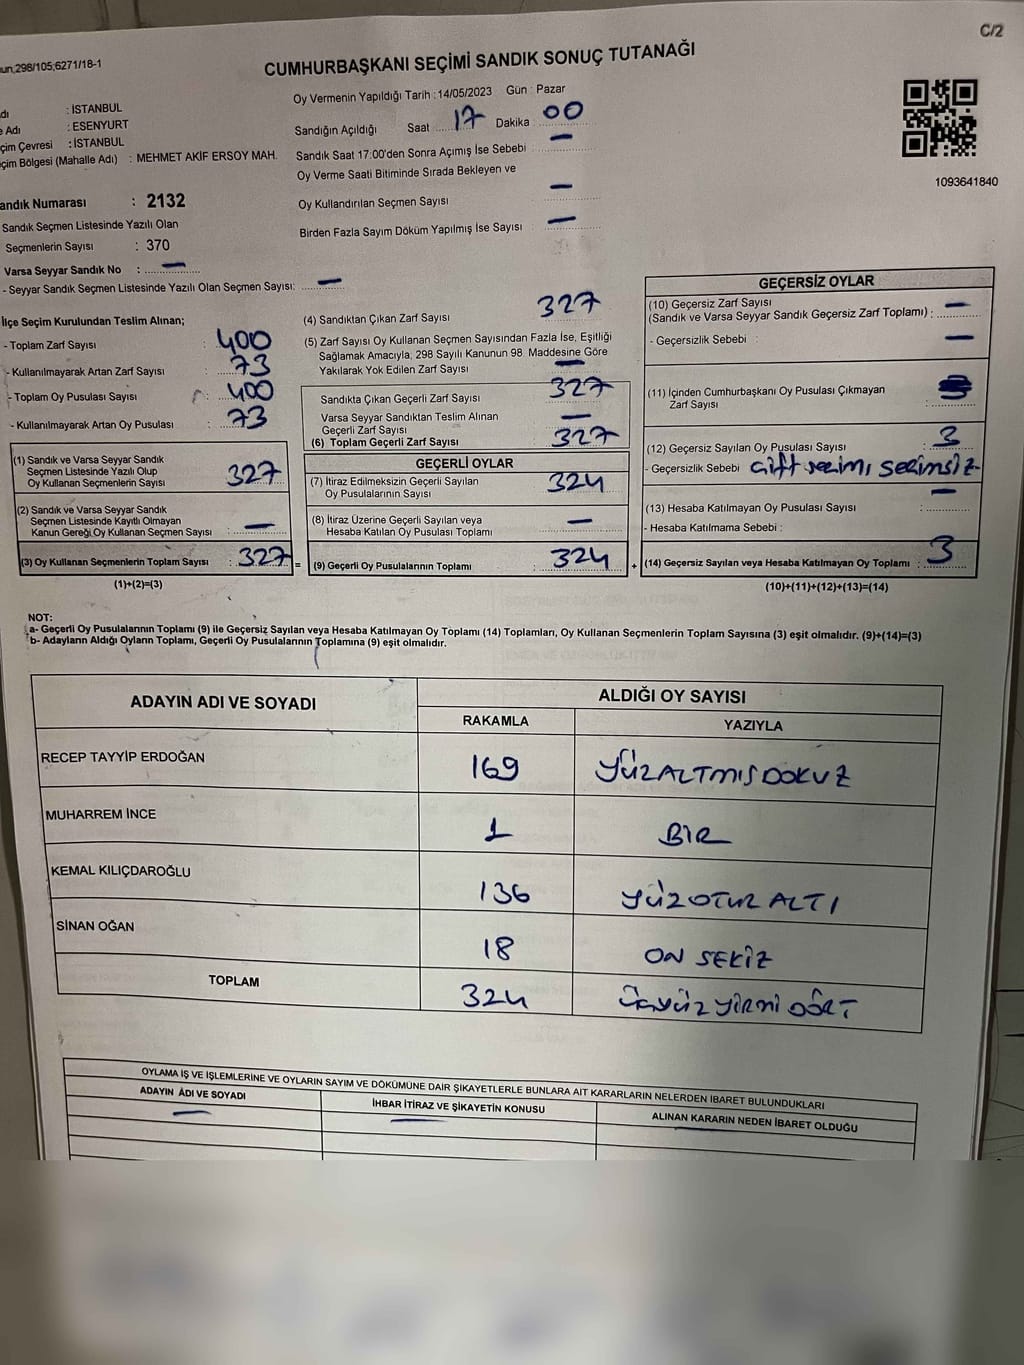 C/2
un;298/105;6271/18-1
CUMHURBAŞKANI SEÇİMİ SANDIK SONUÇ TUTANAĞI
Oy Vermenin Yapıldığı Tarih : 14/05/2023 Gün : Pazar
dı : İSTANBUL
e Adı : ESENYURT
çim Çevresi : İSTANBUL
çim Bölgesi (Mahalle Adı) : MEHMET AKİF ERSOY MAH.
Sandığın Açıldığı Saat 17 Dakika 00
Sandık Saat 17:00'den Sonra Açımış İse Sebebi : —
Oy Verme Saati Bitiminde Sırada Bekleyen ve
Oy Kullandırılan Seçmen Sayısı —
Birden Fazla Sayım Döküm Yapılmış İse Sayısı : —
1093641840
andık Numarası : 2132
Sandık Seçmen Listesinde Yazılı Olan
Seçmenlerin Sayısı : 370
Varsa Seyyar Sandık No : —
- Seyyar Sandık Seçmen Listesinde Yazılı Olan Seçmen Sayısı: —
İlçe Seçim Kurulundan Teslim Alınan;
- Toplam Zarf Sayısı : 400
- Kullanılmayarak Artan Zarf Sayısı : 73
- Toplam Oy Pusulası Sayısı : 400
- Kullanılmayarak Artan Oy Pusulası : 73
(1) Sandık ve Varsa Seyyar Sandık
Seçmen Listesinde Yazılı Olup
Oy Kullanan Seçmenlerin Sayısı : 327
(2) Sandık ve Varsa Seyyar Sandık
Seçmen Listesinde Kayıtlı Olmayan
Kanun Gereği Oy Kullanan Seçmen Sayısı : —
(3) Oy Kullanan Seçmenlerin Toplam Sayısı : 327 =
(1)+(2)=(3)
(4) Sandıktan Çıkan Zarf Sayısı : 327
(5) Zarf Sayısı Oy Kullanan Seçmen Sayısından Fazla İse, Eşitliği
Sağlamak Amacıyla, 298 Sayılı Kanunun 98. Maddesine Göre
Yakılarak Yok Edilen Zarf Sayısı —
Sandıkta Çıkan Geçerli Zarf Sayısı : 327
Varsa Seyyar Sandıktan Teslim Alınan
Geçerli Zarf Sayısı : —
(6) Toplam Geçerli Zarf Sayısı : 327
GEÇERLİ OYLAR
(7) İtiraz Edilmeksizin Geçerli Sayılan
Oy Pusulalarının Sayısı : 324
(8) İtiraz Üzerine Geçerli Sayılan veya
Hesaba Katılan Oy Pusulası Toplamı : —
(9) Geçerli Oy Pusulalarının Toplamı : 324 +
GEÇERSİZ OYLAR
(10) Geçersiz Zarf Sayısı
(Sandık ve Varsa Seyyar Sandık Geçersiz Zarf Toplamı) : —
- Geçersizlik Sebebi : —
(11) İçinden Cumhurbaşkanı Oy Pusulası Çıkmayan
Zarf Sayısı :
(12) Geçersiz Sayılan Oy Pusulası Sayısı : 3
- Geçersizlik Sebebi çift seçimi seçimsiz-
(13) Hesaba Katılmayan Oy Pusulası Sayısı : —
- Hesaba Katılmama Sebebi :
(14) Geçersiz Sayılan veya Hesaba Katılmayan Oy Toplamı : 3
(10)+(11)+(12)+(13)=(14)
NOT:
a- Geçerli Oy Pusulalarının Toplamı (9) ile Geçersiz Sayılan veya Hesaba Katılmayan Oy Toplamı (14) Toplamları, Oy Kullanan Seçmenlerin Toplam Sayısına (3) eşit olmalıdır. (9)+(14)=(3)
b- Adayların Aldığı Oyların Toplamı, Geçerli Oy Pusulalarının Toplamına (9) eşit olmalıdır.
ADAYIN ADI VE SOYADI ALDIĞI OY SAYISI
RAKAMLA YAZIYLA
RECEP TAYYİP ERDOĞAN 169 YÜZALTMIŞDOKUZ
MUHARREM İNCE 1 BİR
KEMAL KILIÇDAROĞLU 136 YÜZOTUZ ALTI
SİNAN OĞAN 18 ON SEKİZ
TOPLAM 324 ÜÇYÜZ YİRMİ DÖRT
OYLAMA İŞ VE İŞLEMLERİNE VE OYLARIN SAYIM VE DÖKÜMÜNE DAİR ŞİKAYETLERLE BUNLARA AİT KARARLARIN NELERDEN İBARET BULUNDUKLARI
ADAYIN ADI VE SOYADI İHBAR İTİRAZ VE ŞİKAYETİN KONUSU ALINAN KARARIN NEDEN İBARET OLDUĞU
— — —